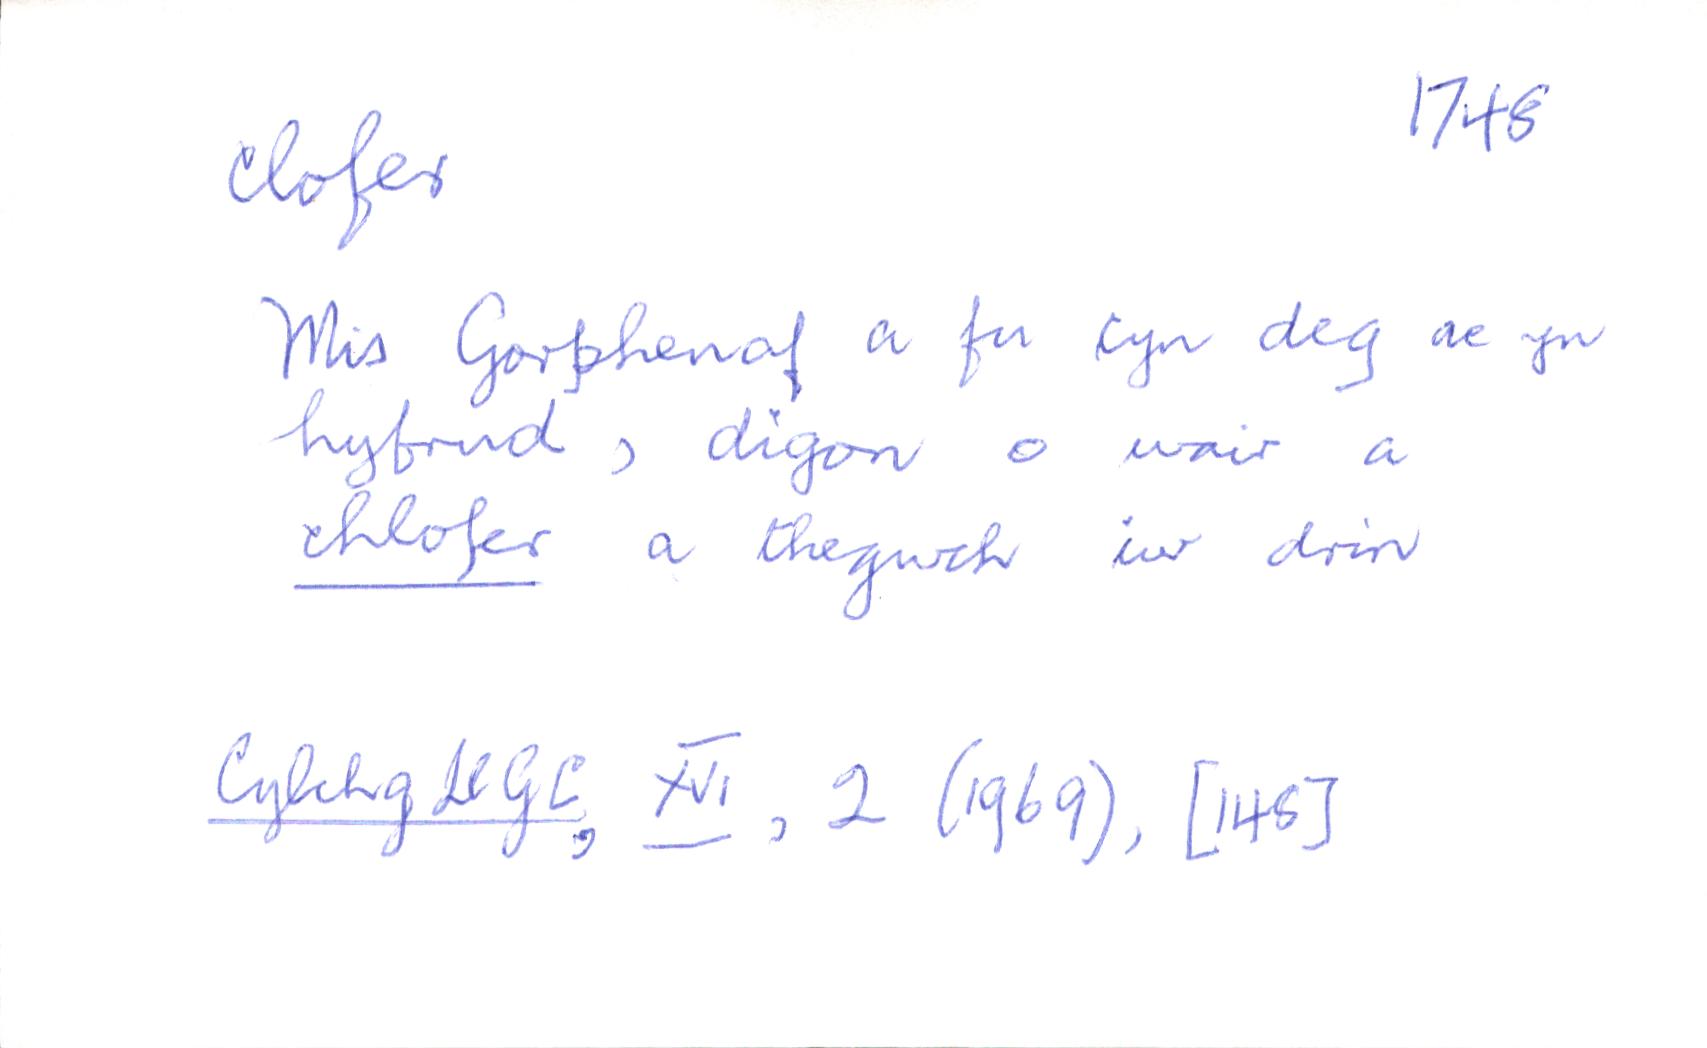 1748
clofer
Mis Gorphenaf a fu cyn deg ac yn
hyfrud, digon o wair a
chlofer a thegwch iw drin
Cylchg LlGC, XVI, 2 (1969), [148]